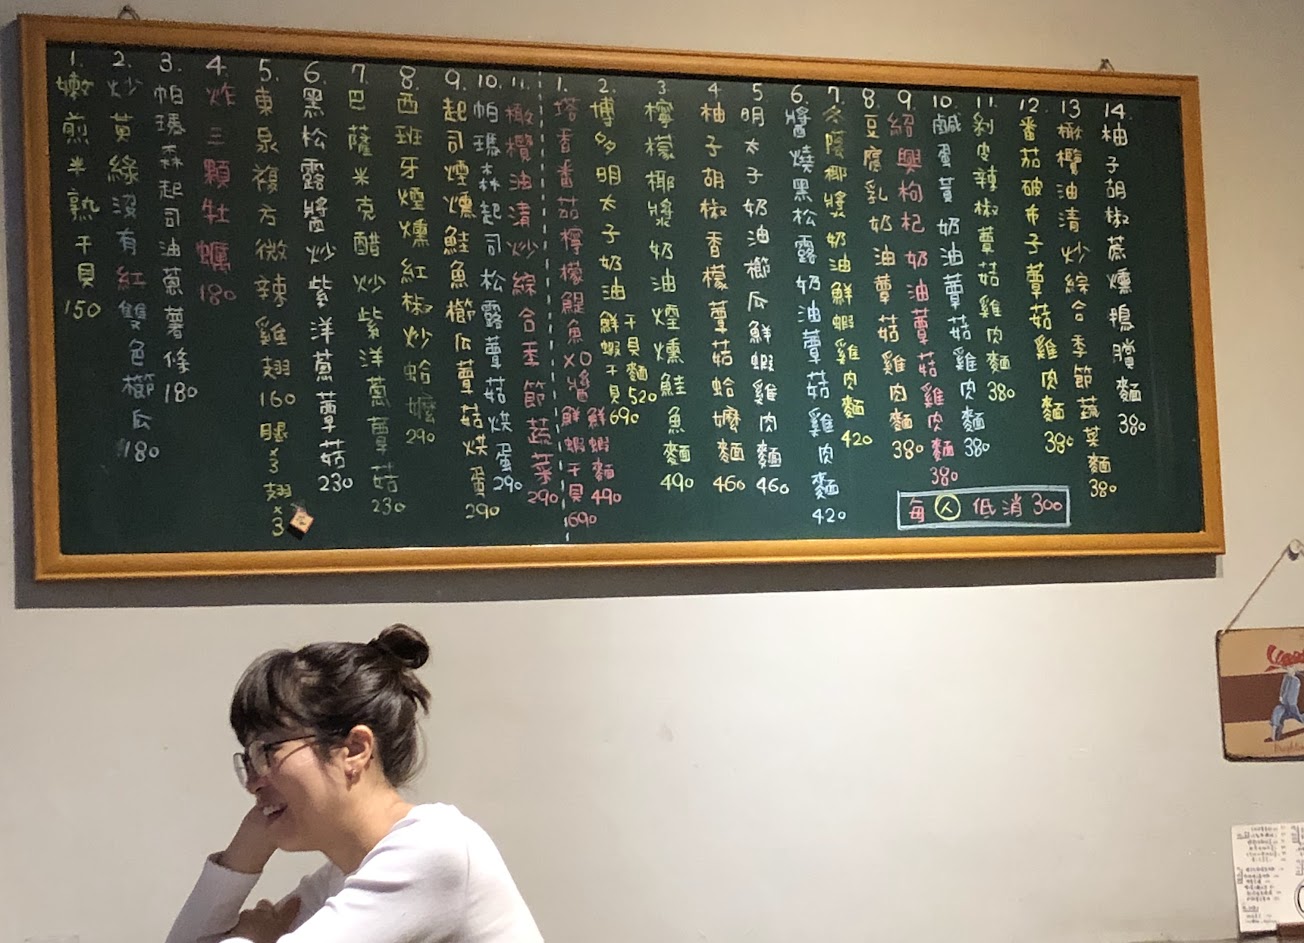 1. 嫩煎半熟干貝 150
2. 炒黃綠沒有紅雙色櫛瓜 180
3. 帕瑪森起司油蔥薯條 180
4. 炸三顆牡蠣 180
5. 東泉複方微辣雞翅 160 腿x3 翅x3
6. 黑松露醬炒紫洋蔥蕈菇 230
7. 巴薩米克醋炒紫洋蔥蕈菇 230
8. 西班牙煙燻紅椒炒蛤蠣 290
9. 起司煙燻鮭魚櫛瓜蕈菇烘蛋 290
10. 帕瑪森起司松露蕈菇烘蛋 290
11. 橄欖油清炒綜合季節蔬菜 290
1. 塔香番茄檸檬鯷魚XO醬 鮮蝦麵 490 鮮蝦干貝 690
2. 博多明太子奶油 干貝麵 520 鮮蝦干貝 690
3. 檸檬椰漿奶油煙燻鮭魚麵 490
4. 柚子胡椒香檬蕈菇蛤蠣麵 460
5. 明太子奶油櫛瓜鮮蝦雞肉麵 460
6. 醬燒黑松露奶油蕈菇雞肉麵 420
7. 冬蔭椰漿奶油鮮蝦雞肉麵 420
8. 豆腐乳奶油蕈菇雞肉麵 380
9. 紹興枸杞奶油蕈菇雞肉麵 380
10. 鹹蛋黃奶油蕈菇雞肉麵 380
11. 剝皮辣椒蕈菇雞肉麵 380
12. 番茄破布子蕈菇雞肉麵 380
13. 橄欖油清炒綜合季節蔬菜麵 380
14. 柚子胡椒蔗燻鴨胸麵 380
每人低消 300